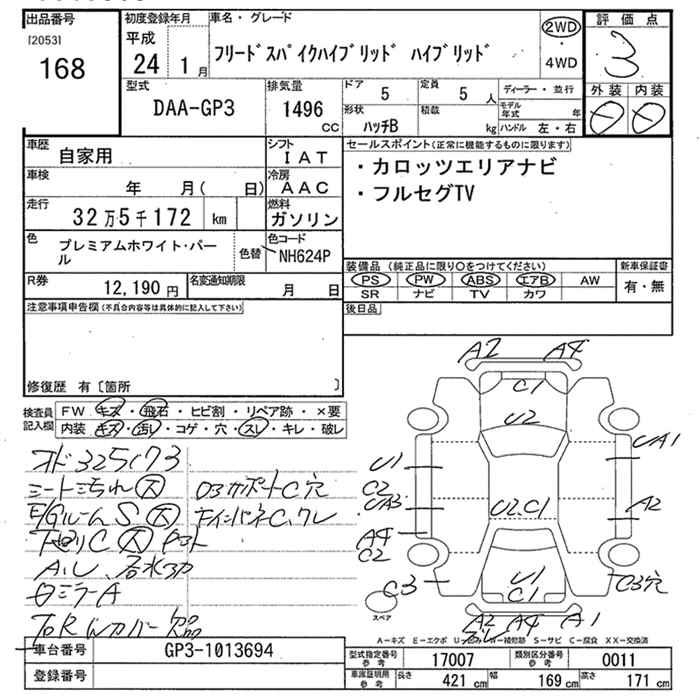 出品番号
[2053]
168
初度登録年月
平成
24 1月
車名・グレード
フリードスパイクハイブリッド ハイブリッド
2WD
・
4WD
評価点
3
外装 内装
型式
DAA-GP3
排気量
1496
CC
ドア
5
定員
5 人
形状
ハッチB
積載
kg
ディーラー・並行
モデル年式 年
ハンドル 左・右
車歴
自家用
シフト
IAT
車検
年 月( 日)
冷房
AAC
走行
32万5千172 km
燃料
ガソリン
色
プレミアムホワイト・パール
色替
色コード
NH624P
R券
12,190 円
名変通知期限
月 日
セールスポイント(正常に機能するものに限ります)
・カロッツエリアナビ
・フルセグTV
装備品 (純正品に限り○をつけてください)
PS PW ABS エアB AW
SR ナビ TV カワ
新車保証書
有・無
後日品
注意事項申告欄(不具合内容等は具体的に記入して下さい)
修復歴 有〔箇所 〕
検査員記入欄
FW キズ・飛石・ヒビ割・リペア跡・×要
内装 キズ・汚レ・コゲ・穴・スレ・キレ・破レ
325173
シートよごれ 大
E/Gルーム S 大
C 大
A.U
ロミラーA
カバー欠品
C穴
A2 A4
C1
U2
U1
C2
UA3
A4
C2
C3
UA1
A2
C3穴
U2.C1
U1
C1
A2 A4 A1
スペア
A-キズ E-エクボ U-凹み W-補修跡 S-サビ C-腐食 XX-交換済
車台番号
GP3-1013694
登録番号
型式指定番号
参考
17007
類別区分番号
参考
0011
車庫証明用
参考
長さ 421 cm
幅 169 cm
高さ 171 cm